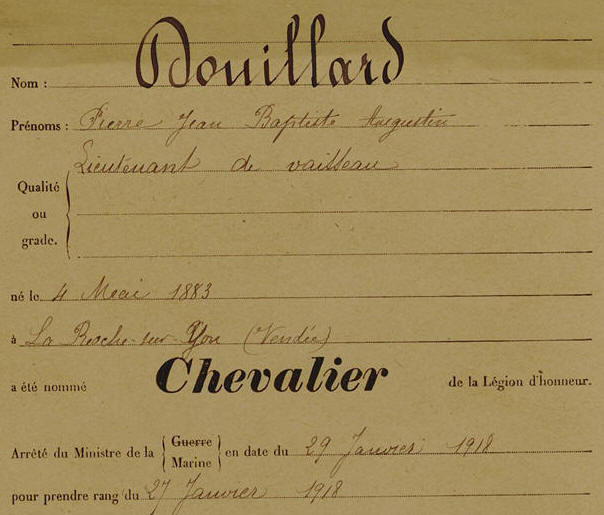 Nom : Douillard
Prénoms : Pierre Jean Baptiste Augustin
Lieutenant de vaisseau
Qualité
ou
grade.
né le 4 Mai 1883
à La Roche-sur-Yon (Vendée)
a été nommé Chevalier de la Légion d'honneur.
Arrêté du Ministre de la { Guerre Marine } en date du 29 Janvier 1918
pour prendre rang du 27 Janvier 1918